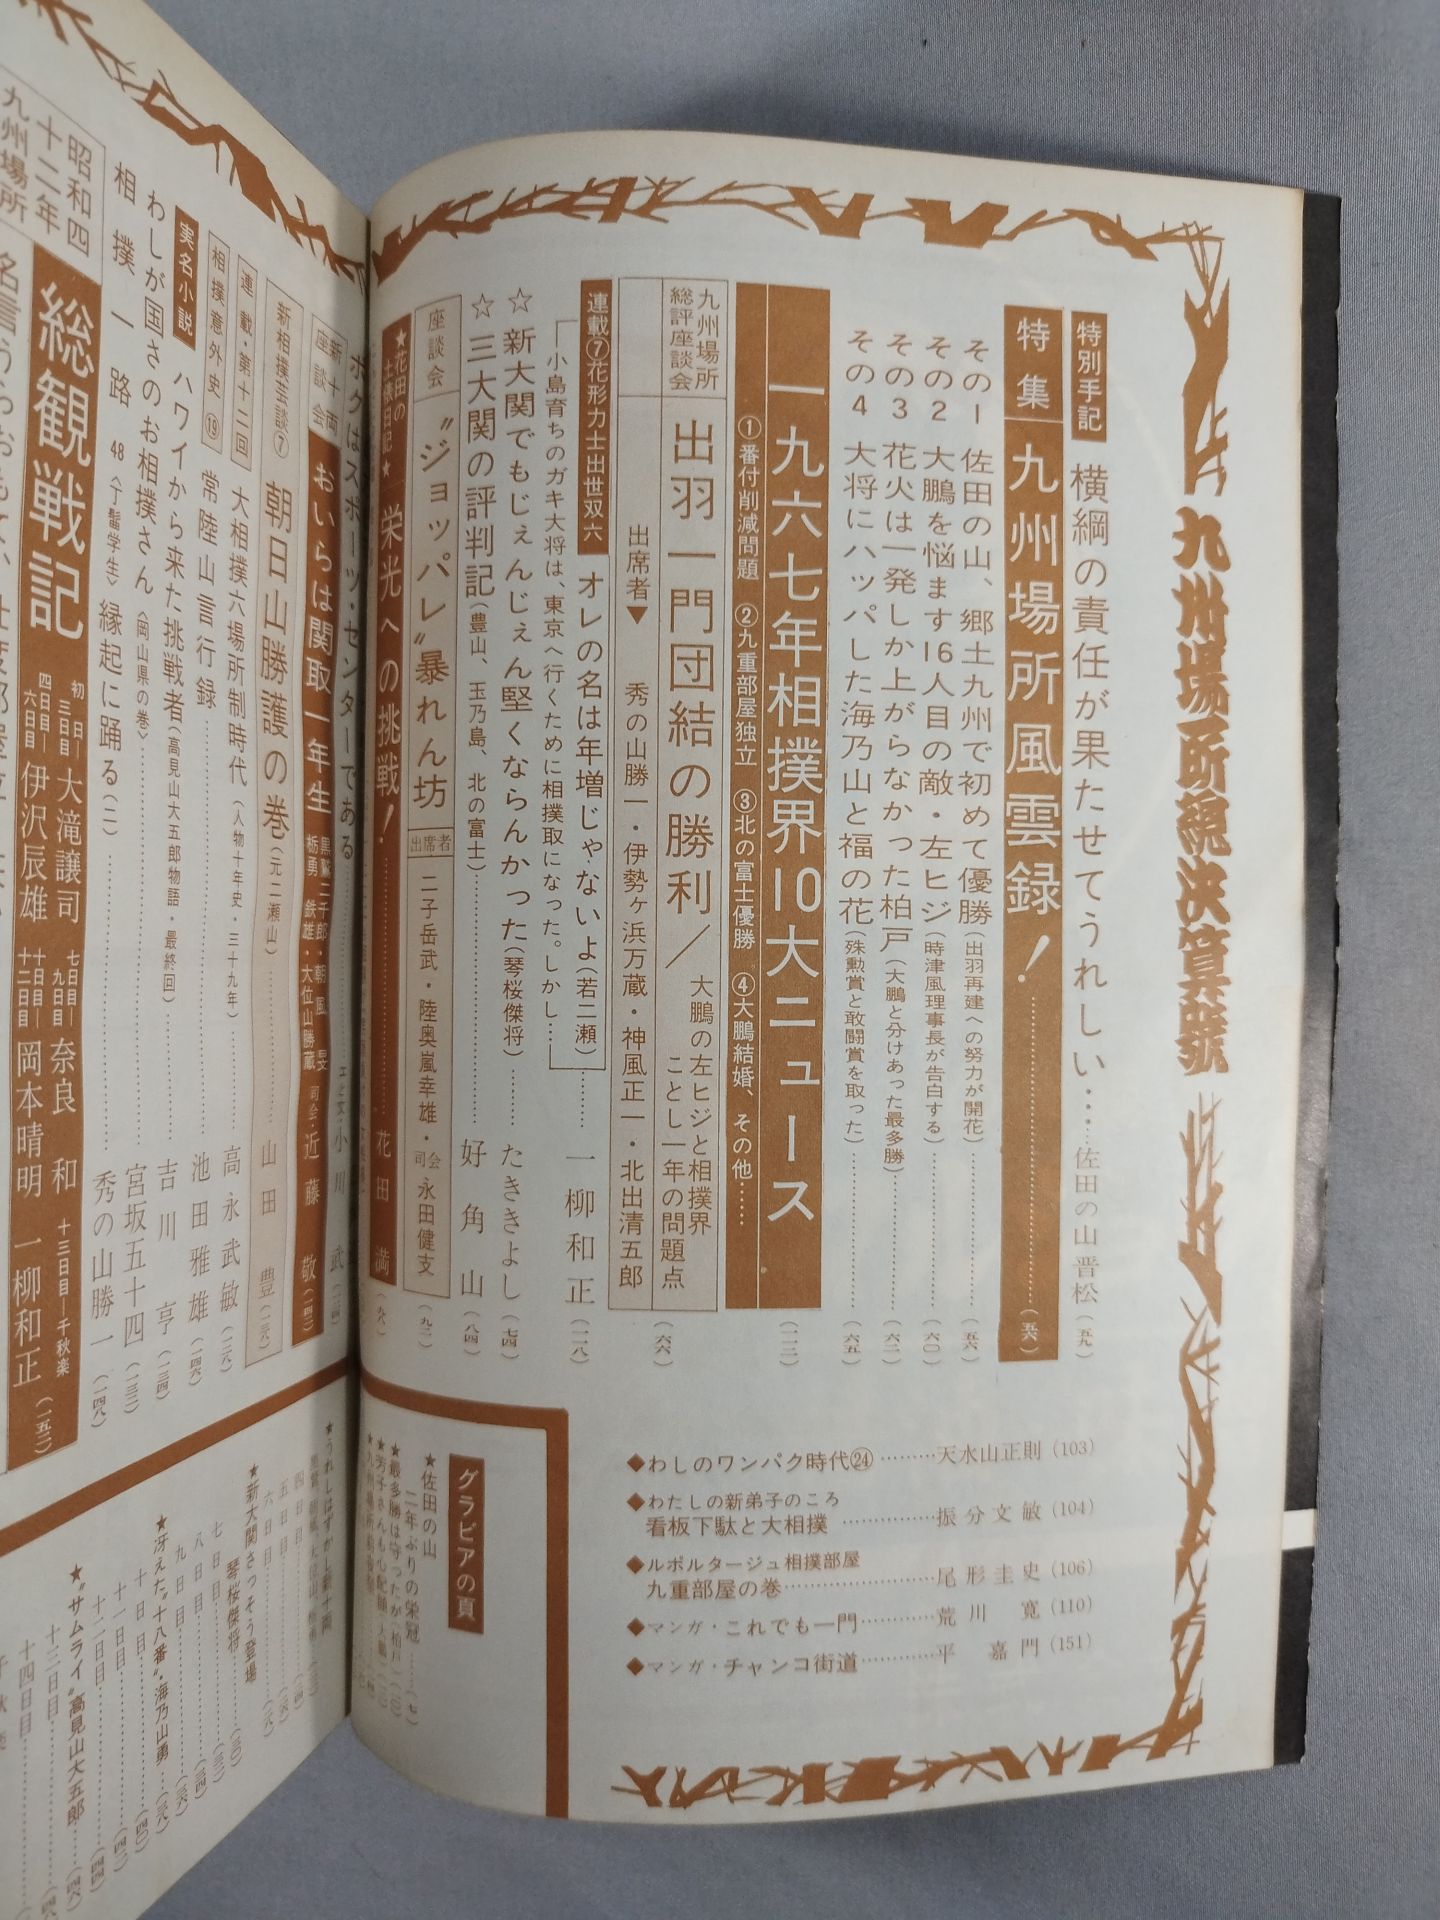 九州場所総決算号
特別手記 横綱の責任が果たせてうれしい……佐田の山晋松(五九)
特集 九州場所風雲録!……(五六)
その1 佐田の山、郷土九州で初めて優勝(出羽再建への努力が開花)……(五六)
その2 大鵬を悩ます16人目の敵・左ヒジ(時津風理事長が告白する)……(六〇)
その3 花火は一発しか上がらなかった柏戸(大鵬と分けあった最多勝)……(六二)
その4 大将にハッパした海乃山と福の花(殊勲賞と敢闘賞を取った)……(六五)
一九六七年相撲界10大ニュース(一一二)
①番付削減問題 ②九重部屋独立 ③北の富士優勝 ④大鵬結婚、その他……
九州場所総評座談会 出羽一門団結の勝利/大鵬の左ヒジと相撲界ことし一年の問題点(六六)
出席者▼ 秀の山勝一・伊勢ヶ浜万蔵・神風正一・北出清五郎
連載⑦花形力士出世双六 オレの名は年増じゃないよ(若二瀬)……一柳和正(一一八)
小島育ちのガキ大将は、東京へ行くために相撲取になった。しかし…
☆新大関でもじぇんじぇん堅くならんかった(琴桜傑将)……たききよし(七四)
☆三大関の評判記(豊山、玉乃島、北の富士)……好角山(八四)
座談会 “ジョッパレ”暴れん坊 出席者 二子岳武・陸奥嵐幸雄・司会 永田健支(九二)
★花田の土俵日記★ 栄光への挑戦!……花田満(九八)
◆わしのワンパク時代㉔………天水山正則(103)
◆わたしの新弟子のころ
看板下駄と大相撲……………振分文敏(104)
◆ルポルタージュ相撲部屋
九重部屋の巻……………尾形圭史(106)
◆マンガ・これでも一門…………荒川 寛(110)
◆マンガ・チャンコ街道…………平 嘉門(151)
グラビアの頁
★佐田の山
二年ぶりの栄冠……(七)
★最多勝は守ったが(柏戸)
★芳子さんも心配顔(大鵬)
ボクはスポーツ・センターである……小川 武
新十両座談会 おいらは関取一年生 司会・近藤 敬
新相撲芸談⑦ 朝日山勝護の巻(元二瀬山)……山田 豊
連載・第十二回 大相撲六場所制時代(人物十年史・三十九年)……高永武敏
相撲意外史⑲ 常陸山言行録……池田雅雄(一四六)
実名小説 ハワイから来た挑戦者(高見山大五郎物語・最終回)……吉川 亨(一三四)
わしが国さのお相撲さん(岡山県の巻)……宮坂五十四(一三三)
相撲一路 48(丁髷学生)縁起に踊る(二)……秀の山勝一(一四八)
昭和四十二年九州場所 総観戦記(一五二)
初日―三日目 大滝譲司
四日目―六日目 伊沢辰雄
七日目―九日目 奈良 和
十日目―十二日目 岡本晴明
十三日目―千秋楽 一柳和正
★うれしはずかし新十両
四日目
五日目
六日目
★新大関さっそう登場
琴桜傑将
七日目
八日目
九日目
★冴えた“十八番”・海乃山勇
十日目
十一日目
十二日目
★“サムライ”高見山大五郎
十三日目
十四日目